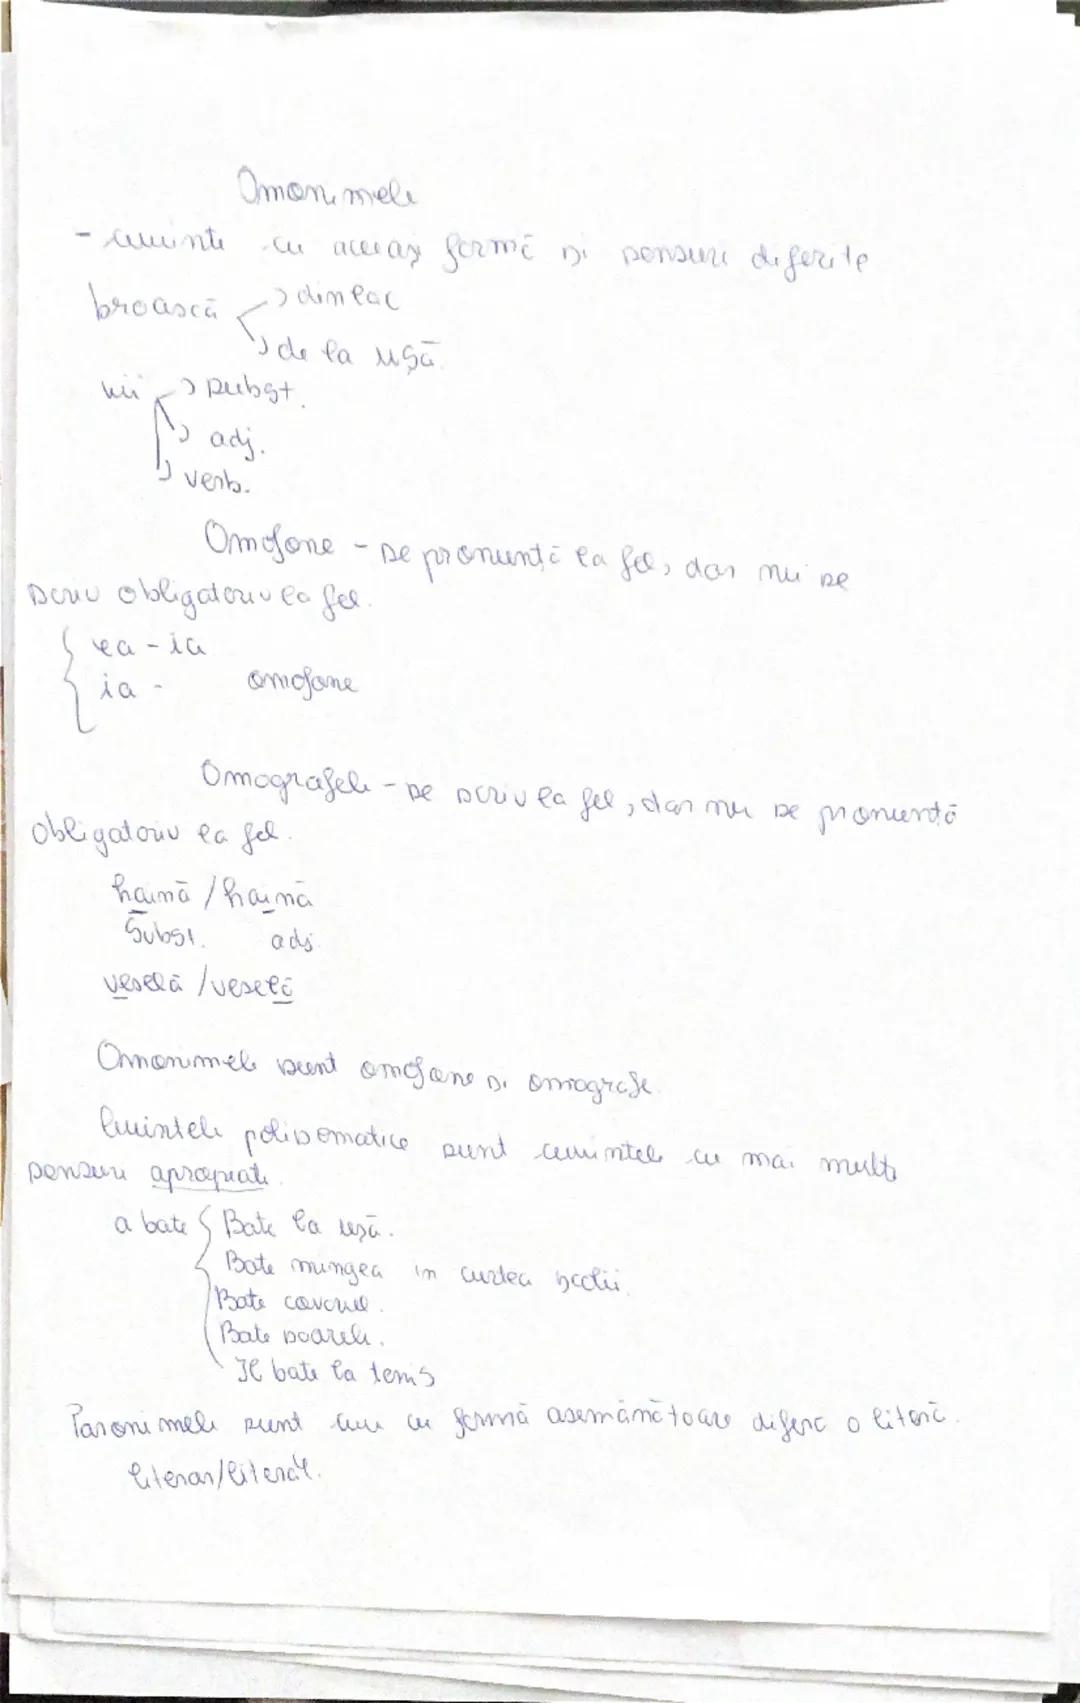 Omonimele
- cuvinte cu aceeași formă și sensuri diferite
broască → din lac
→ de la ușă.
vii → subst.
→ adj.
→ verb.
Omofone - se pronunță la fel, dar nu se
scriu obligatoriu la fel.
ea - ia
ia - omofone
Omografele - se scriu la fel, dar nu se pronunță
obligatoriu la fel.
haină / haină
Subst. adj.
veselă / veselă
Omonimele sunt omofone și omografe.
Cuvintele polisematice sunt cuvintele cu mai multe
sensuri apropiate.
a bate { Bate la ușă.
Bate mingea în curtea școlii.
Bate covorul.
Bate soarele.
Îl bate la tenis
Paronimele sunt cuv cu formă asemănătoare diferă o literă.
literar/literal.